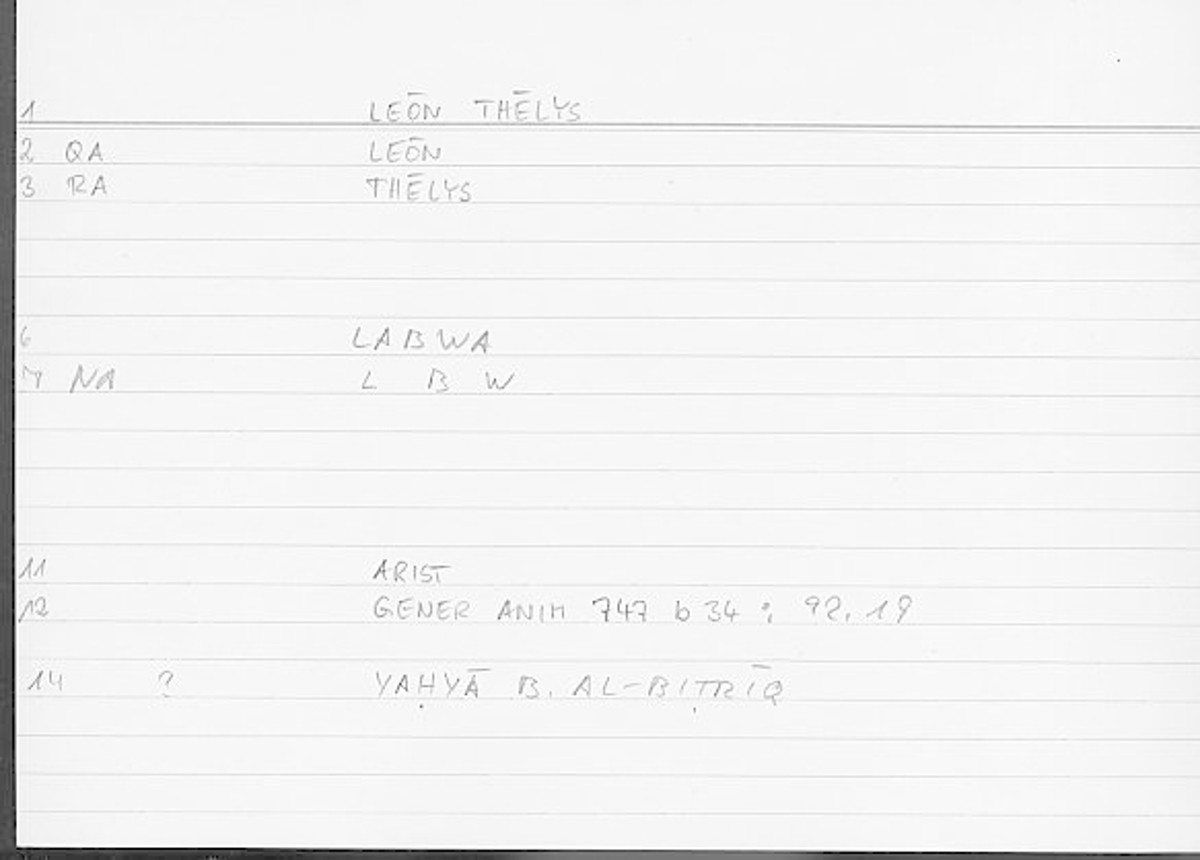 1 LEŌN THĒLYS
2 QA LEŌN
3 RA THĒLYS
6 LABWA
7 NA L B W
11 ARIST
12 GENER ANIM 747 b 34 ; 92, 19
14 ? YAḤYĀ B. AL-BIṬRĪQ